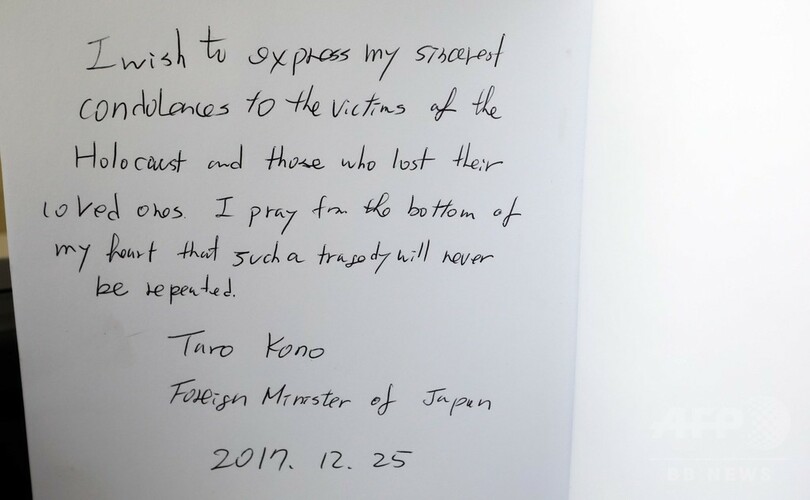 I wish to express my sincerest
condolences to the victims of the
Holocaust and those who lost their
loved ones. I pray from the bottom of
my heart that such a tragedy will never
be repeated.
Taro Kono
Foreign Minister of Japan
2017. 12. 25
AFP
BB NEWS